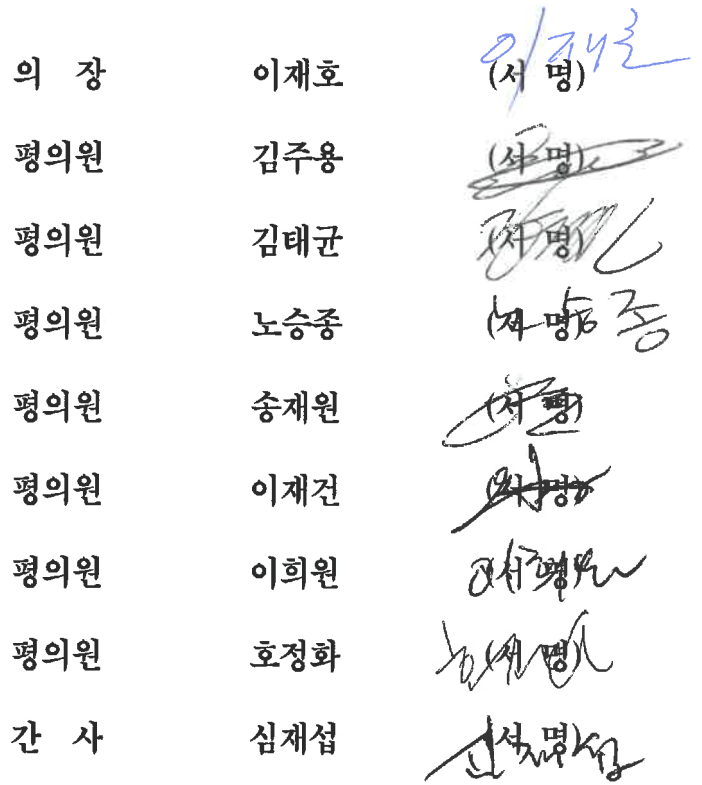 의 장 이재호 (서 명)
평의원 김주용 (서 명)
평의원 김태균 (서 명)
평의원 노승종 (서 명)
평의원 송재원 (서 명)
평의원 이재건 (서 명)
평의원 이희원 (서 명)
평의원 호정화 (서 명)
간 사 심재섭 (서 명)